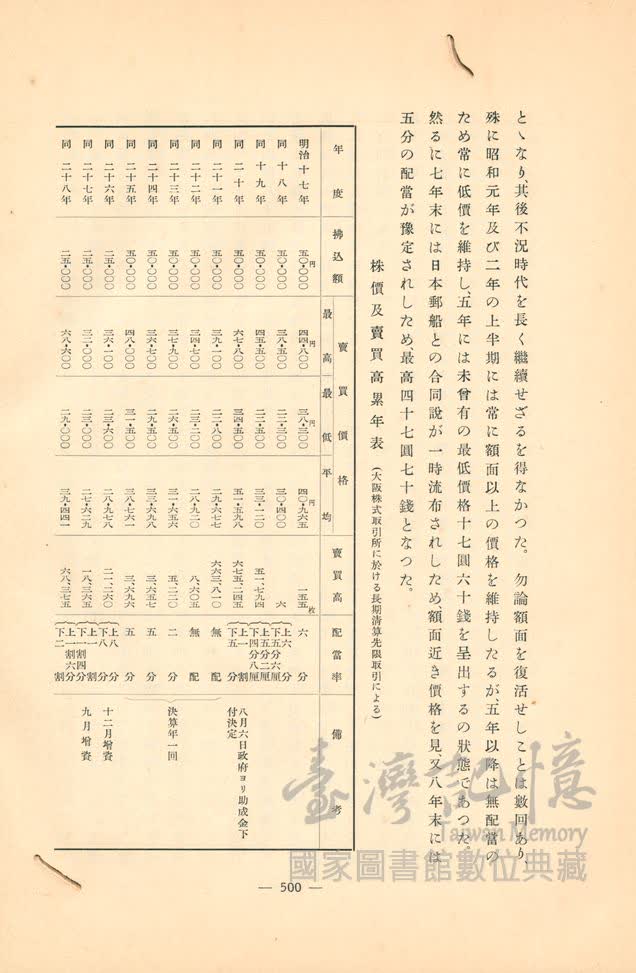 とゝなり、其後不況時代を長く繼續せざるを得なかつた。 勿論額面を復活せしことは數回あり、
殊に昭和元年及び二年の上半期には常に額面以上の價格を維持したるが、五年以降は無配當の
ため常に低價を維持し、五年には未曾有の最低價格十七圓六十錢を呈出するの狀態であつた。
然るに七年末には日本郵船との合同說が一時流布されしため、額面近き價格を見、又八年末には
五分の配當が豫定されしため、最高四十七圓七十錢となつた。
株價及賣買高累年表 (大阪株式取引所に於ける長期清算先限取引による)
年度 拂込額 賣買價格 最高 最低 平均 賣買高 配當率 備考
明治十七年 五〇・〇〇〇円 四四・八〇〇 三八・三〇〇 四〇・九六五円 一五五枚 六分
同 十八年 五〇・〇〇〇 三八・五〇〇 二二・三〇〇 三〇・四〇〇 六 上六分 下五分五厘
同 十九年 五〇・〇〇〇 四五・五〇〇 二三・五〇〇 三三・一二〇 五一、七九四 上五分二厘 下四分八厘
同 二十年 五〇・〇〇〇 六七・八〇〇 三四・五〇〇 五一・五九八 六七五、二四五 上一割六分 下五分 八月六日政府ヨリ助成金下付決定
同 二十一年 五〇・〇〇〇 三九・一〇〇 二二・八〇〇 二九・六七七 六六三、八一〇 無配
同 二十二年 五〇・〇〇〇 三四・六〇〇 二二・〇〇〇 二八・九二〇 八、六〇五 無配
同 二十三年 五〇・〇〇〇 三七・九〇〇 二六・五〇〇 三一・六五六 五、二二〇 二分 決算年一回
同 二十四年 五〇・〇〇〇 三六・七〇〇 二九・五〇〇 三三・六九八 三、六五七 五分
同 二十五年 五〇・〇〇〇 四八・〇〇〇 三一・五〇〇 三八・七六一 三、六九六 五分
同 二十六年 二五・〇〇〇 三六・一〇〇 二三・六〇〇 二八・九七八 二一、二六〇 上八分 下八分 十二月增資
同 二十七年 二五・〇〇〇 三二・〇〇〇 二三・〇〇〇 二七・六二九 一八、三六五 上一割四分 下一割 九月增資
同 二十八年 二五・〇〇〇 六八・六〇〇 二九・〇〇〇 三九・四四一 六八、三七五 上一割六分 下二割
臺灣記憶
Taiwan Memory
國家圖書館數位典藏
— 500 —